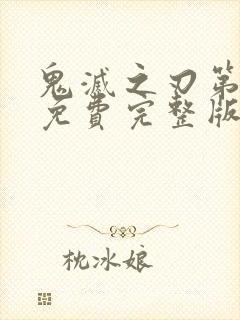 鬼滅之刃第
免費完整版
枕冰娘